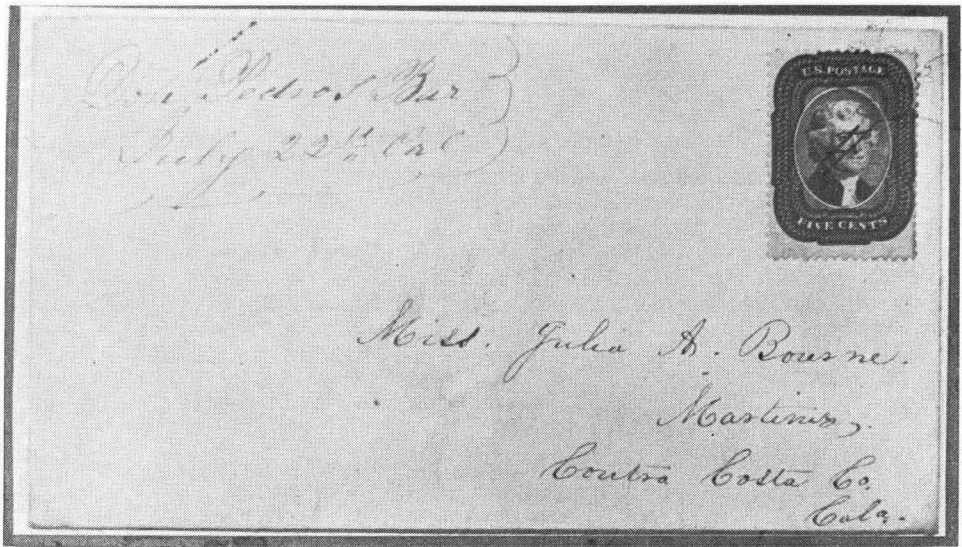 Don Pedros Bar
July 22d Cal
U.S. POSTAGE
FIVE CENTS
Miss. Julia A. Bourne.
Martinez,
Contra Costa Co.
Cala.